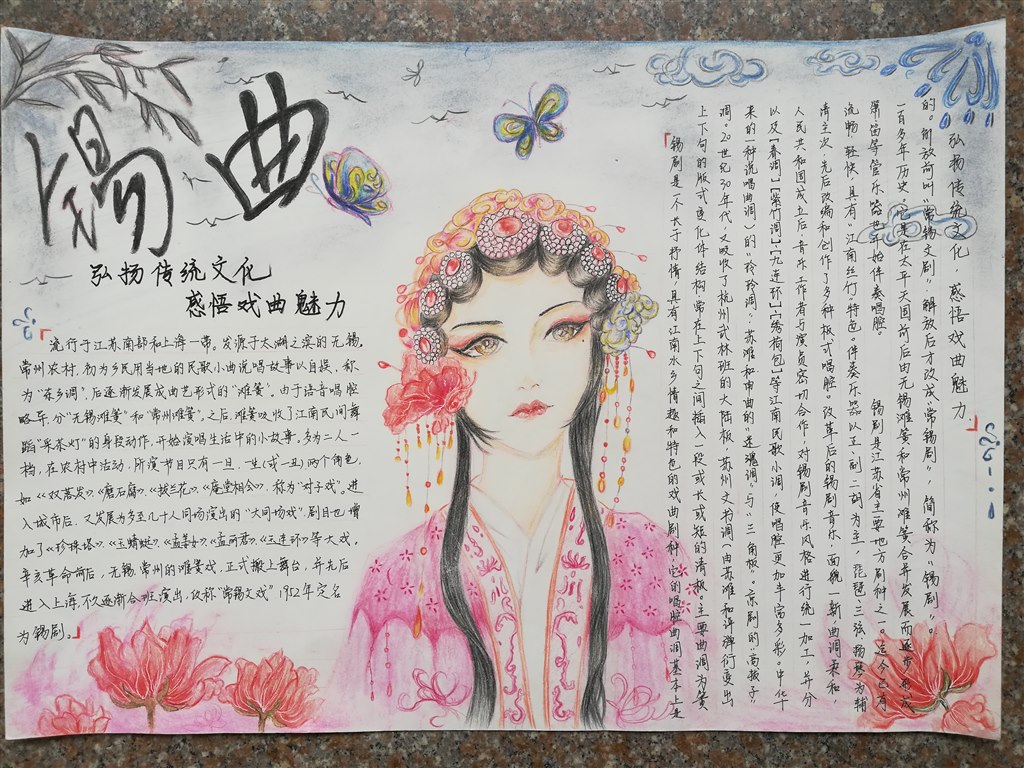 锡曲
弘扬传统文化
感悟戏曲魅力
流行于江苏南部和上海一带。发源于太湖之滨的无锡、
常州农村,初为乡民用当地的民歌小曲说唱故事以自娱,称
为“东乡调”,后逐渐发展成曲艺形式的“滩簧”。由于语音唱腔
略异,分“无锡滩簧”和“常州滩簧”,之后滩簧吸收了江南民间舞
蹈“采茶灯”的身段动作,开始演唱生活中的小故事,多为二人一
档,在农村中活动,所演节目只有一旦、一生(或一丑)两个角色,
如《双落发》、《磨石腐》、《拔兰花》、《庵堂相会》,称为“对子戏”。进
入城市后,又发展为多至几十人同场演出的“大同场戏”,剧目也增
加了《珍珠塔》、《玉蜻蜓》、《孟姜女》、《孟丽君》、《玉连环》等大戏,
辛亥革命前后,无锡、常州的滩簧戏,正式搬上舞台,并先后
进入上海,不久逐渐合班演出,仅称“常锡文戏”1952年定名
为锡剧。
弘扬传统文化,感悟戏曲魅力
锡剧是江苏省主要地方剧种之一。迄今已有
一百多年历史,它是在太平天国前后由无锡滩簧和常州滩簧合并发展而逐步形成
的。解放前叫“常锡文剧”,解放后才改成“常锡剧”,简称为“锡剧”。
锡剧是一个长于抒情,具有江南水乡情趣和特色的戏曲剧种,它的唱腔曲调基本上是
上下句的版式变化体结构,常在上下句之间插入一段或长或短的清板。主要曲调为簧
调。20世纪30年代,又吸收了杭州武林班的大陆板,苏州文书调(由苏滩和评弹衍变出
来的种说唱曲调)的“玲玲调”,苏滩和申曲的“迷魂调”与“三角板”。京剧的“高拨子”
以及【春调】【紫竹调】【九连环】【绣荷包】等江南民歌小调,使唱腔更加丰富多彩。中华
人民共和国成立后,音乐工作者与演员密切合作,对锡剧音乐风格进行统一加工,并分
清主次,先后改编和创作了多种板式唱腔。改革后的锡剧音乐,面貌一新,曲调柔和,
流畅轻快,具有“江南丝竹”特色。伴奏乐器以正、副二胡为主,琵琶三弦扬琴为辅
箫笛等管乐器也开始伴奏唱腔。